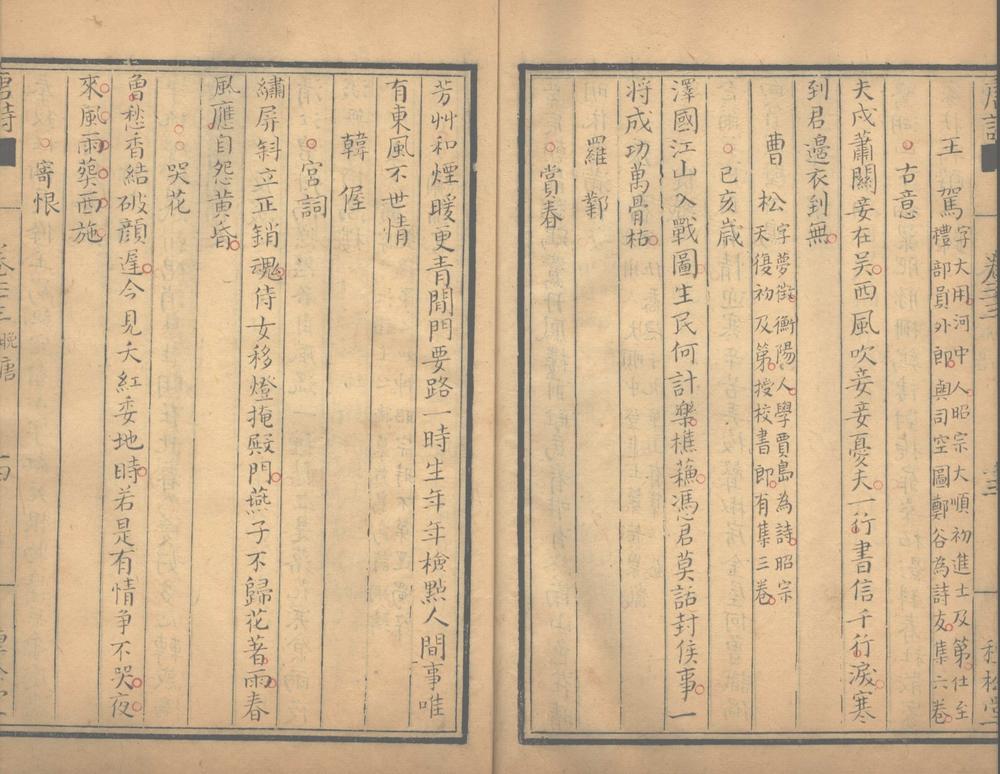 王駕
字大用河中人昭宗大順初進士及第仕至
禮部員外郎與司空圖鄭谷為詩友集六卷
古意
夫戍蕭關妾在吳西風吹妾妾憂夫一行書信千行淚寒
到君邊衣到無
曹松
字夢徵衡陽人學賈島為詩昭宗
天復初及第授校書郎有集三卷
己亥歲
澤國江山入戰圖生民何計樂樵蘓馮君莫話封侯事一
將成功萬骨枯
羅鄴
賞春
芳艸和煙暖更青閒門要路一時生年年檢點人間事唯
有東風不世情
韓偓
宮詞
繡屏斜立正銷魂侍女移燈掩殿門燕子不歸花著雨春
風應自怨黃昏
哭花
曾愁香結破顏遲今見夭紅委地時若是有情爭不哭夜
來風雨葬西施
寄恨
唐詩
晚唐